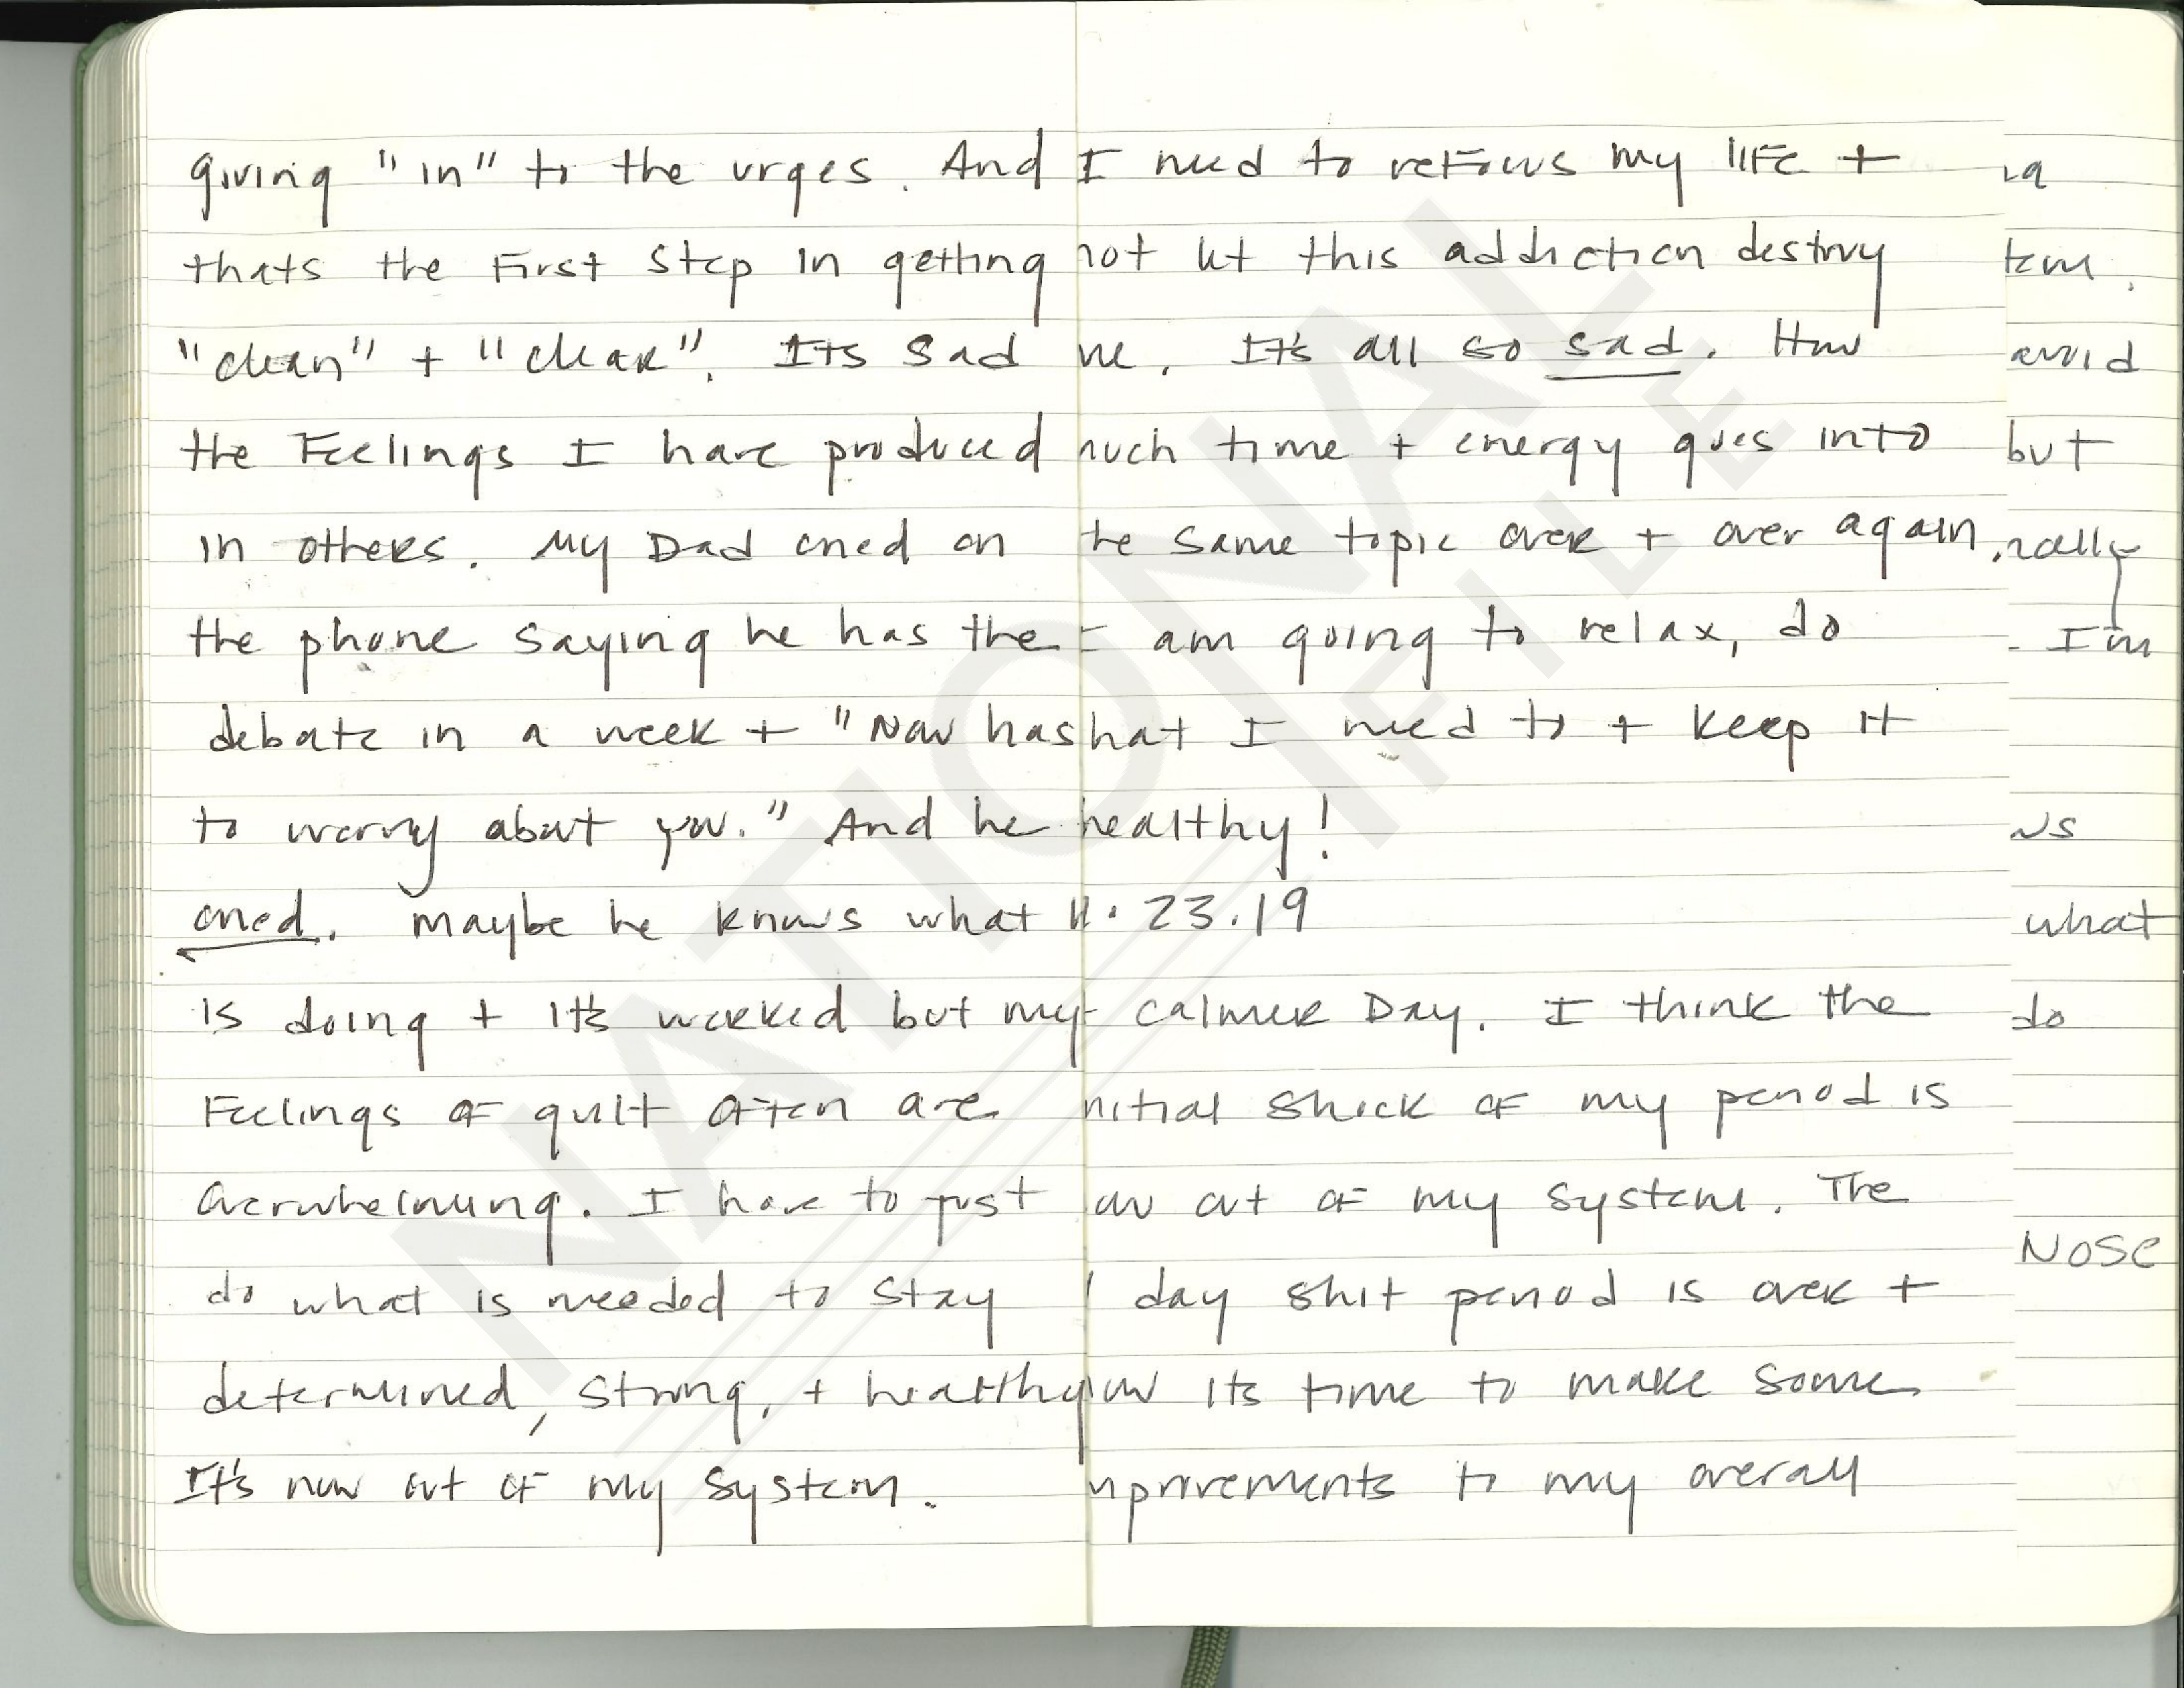 giving "in" to the urges. And
thats the First step in getting
"clean" + "clear". Its sad
the Feelings I have produced
in others. My Dad cried on
the phone saying he has the
debate in a week + "Now has
to worry about you." And he
cried. Maybe he knows what
is doing + it's worked but my
Feelings of guilt often are
overwhelming. I have to just
do what is needed to stay
determined, strong, + healthy
It's now out of my system.
I need to refocus my life +
not let this addiction destroy
me. It's all so sad. How
much time + energy goes into
he same topic over + over again.
am going to relax, do
hat I need to + keep it
healthy!
11.23.19
calmer Day. I think the
nitial shock of my period is
out of my system. The
day shit period is over +
ow its time to make some
mprovements to my overall
avoid
but
I'm
what
do
NOSE
NATIONAL
FILE